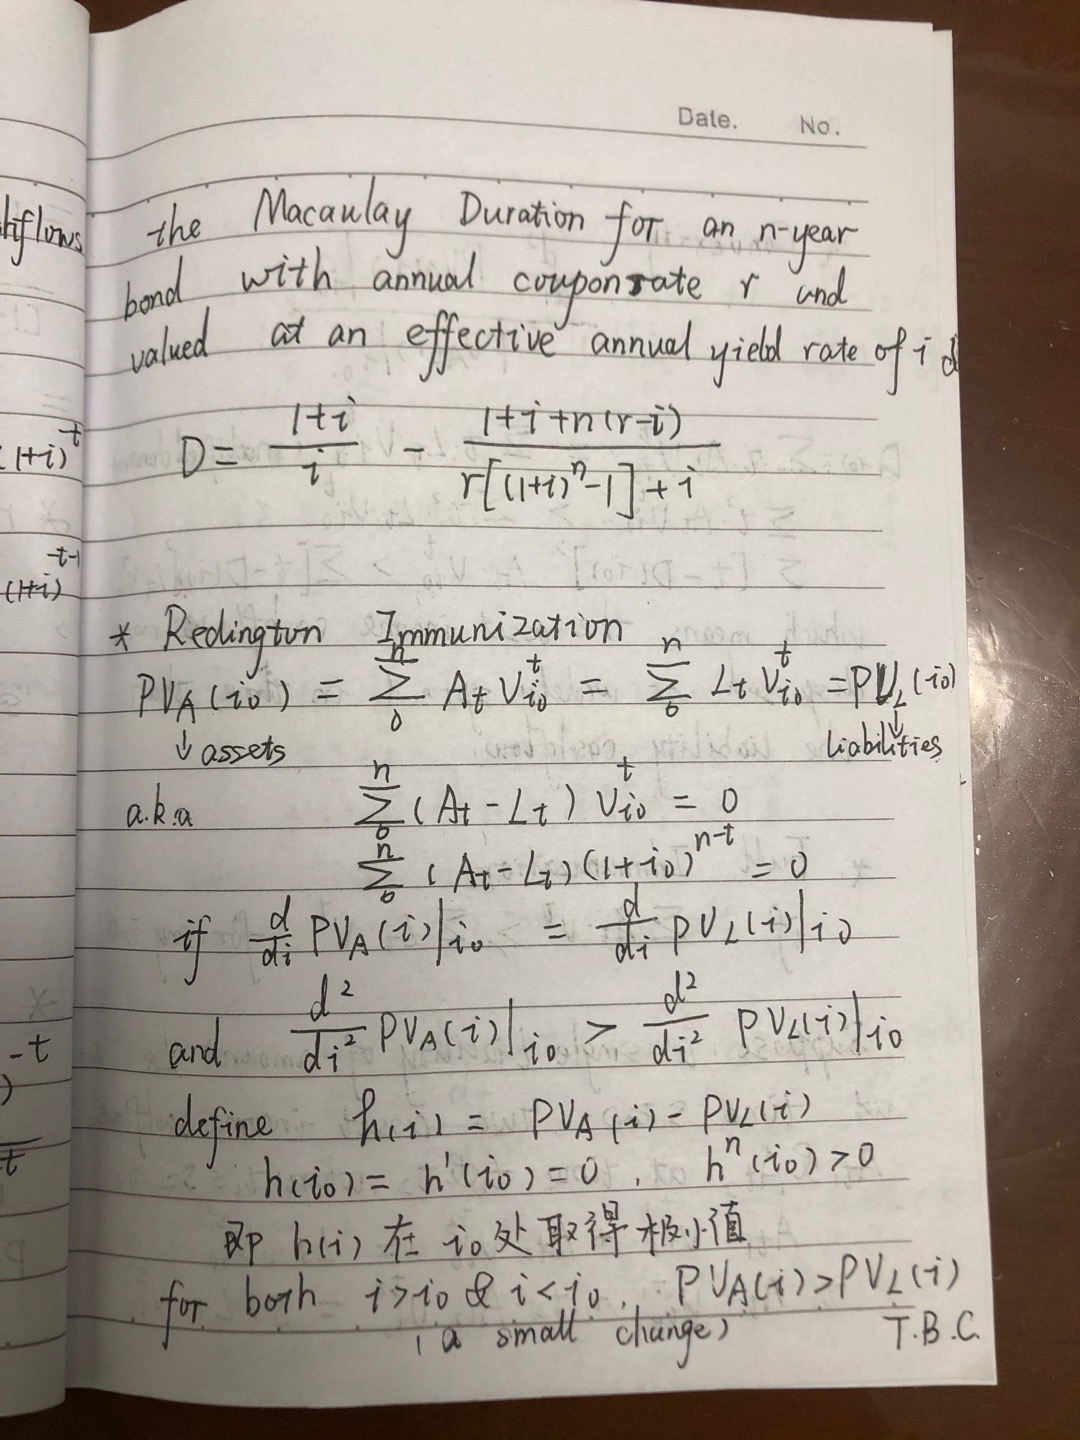 Date. No.
the Macaulay Duration for an n-year
bond with annual coupon rate r and
valued at an effective annual yield rate of i
D = \frac{1+i}{i} - \frac{1+i+n(r-i)}{r[(1+i)^n-1]+i}
* Redington Immunization
PV_A(i_0) = \sum_0^n A_t V_{i_0}^t = \sum_0^n L_t V_{i_0}^t = PV_L(i_0)
↓ assets ↓ liabilities
a.k.a \sum_0^n (A_t - L_t) V_{i_0}^t = 0
\sum_0^n (A_t - L_t)(1+i_0)^{n-t} = 0
if \frac{d}{di} PV_A(i)|_{i_0} = \frac{d}{di} PV_L(i)|_{i_0}
and \frac{d^2}{di^2} PV_A(i)|_{i_0} > \frac{d^2}{di^2} PV_L(i)|_{i_0}
define h(i) = PV_A(i) - PV_L(i)
h(i_0) = h'(i_0) = 0, h''(i_0) > 0
即 h(i) 在 i_0 处取得极小值
for both i>i_0 & i<i_0, PV_A(i)>PV_L(i)
(a small change) T.B.C.
hflows
(1+i)^{-t}
(1+i)^{-t-1}
-t
)
t